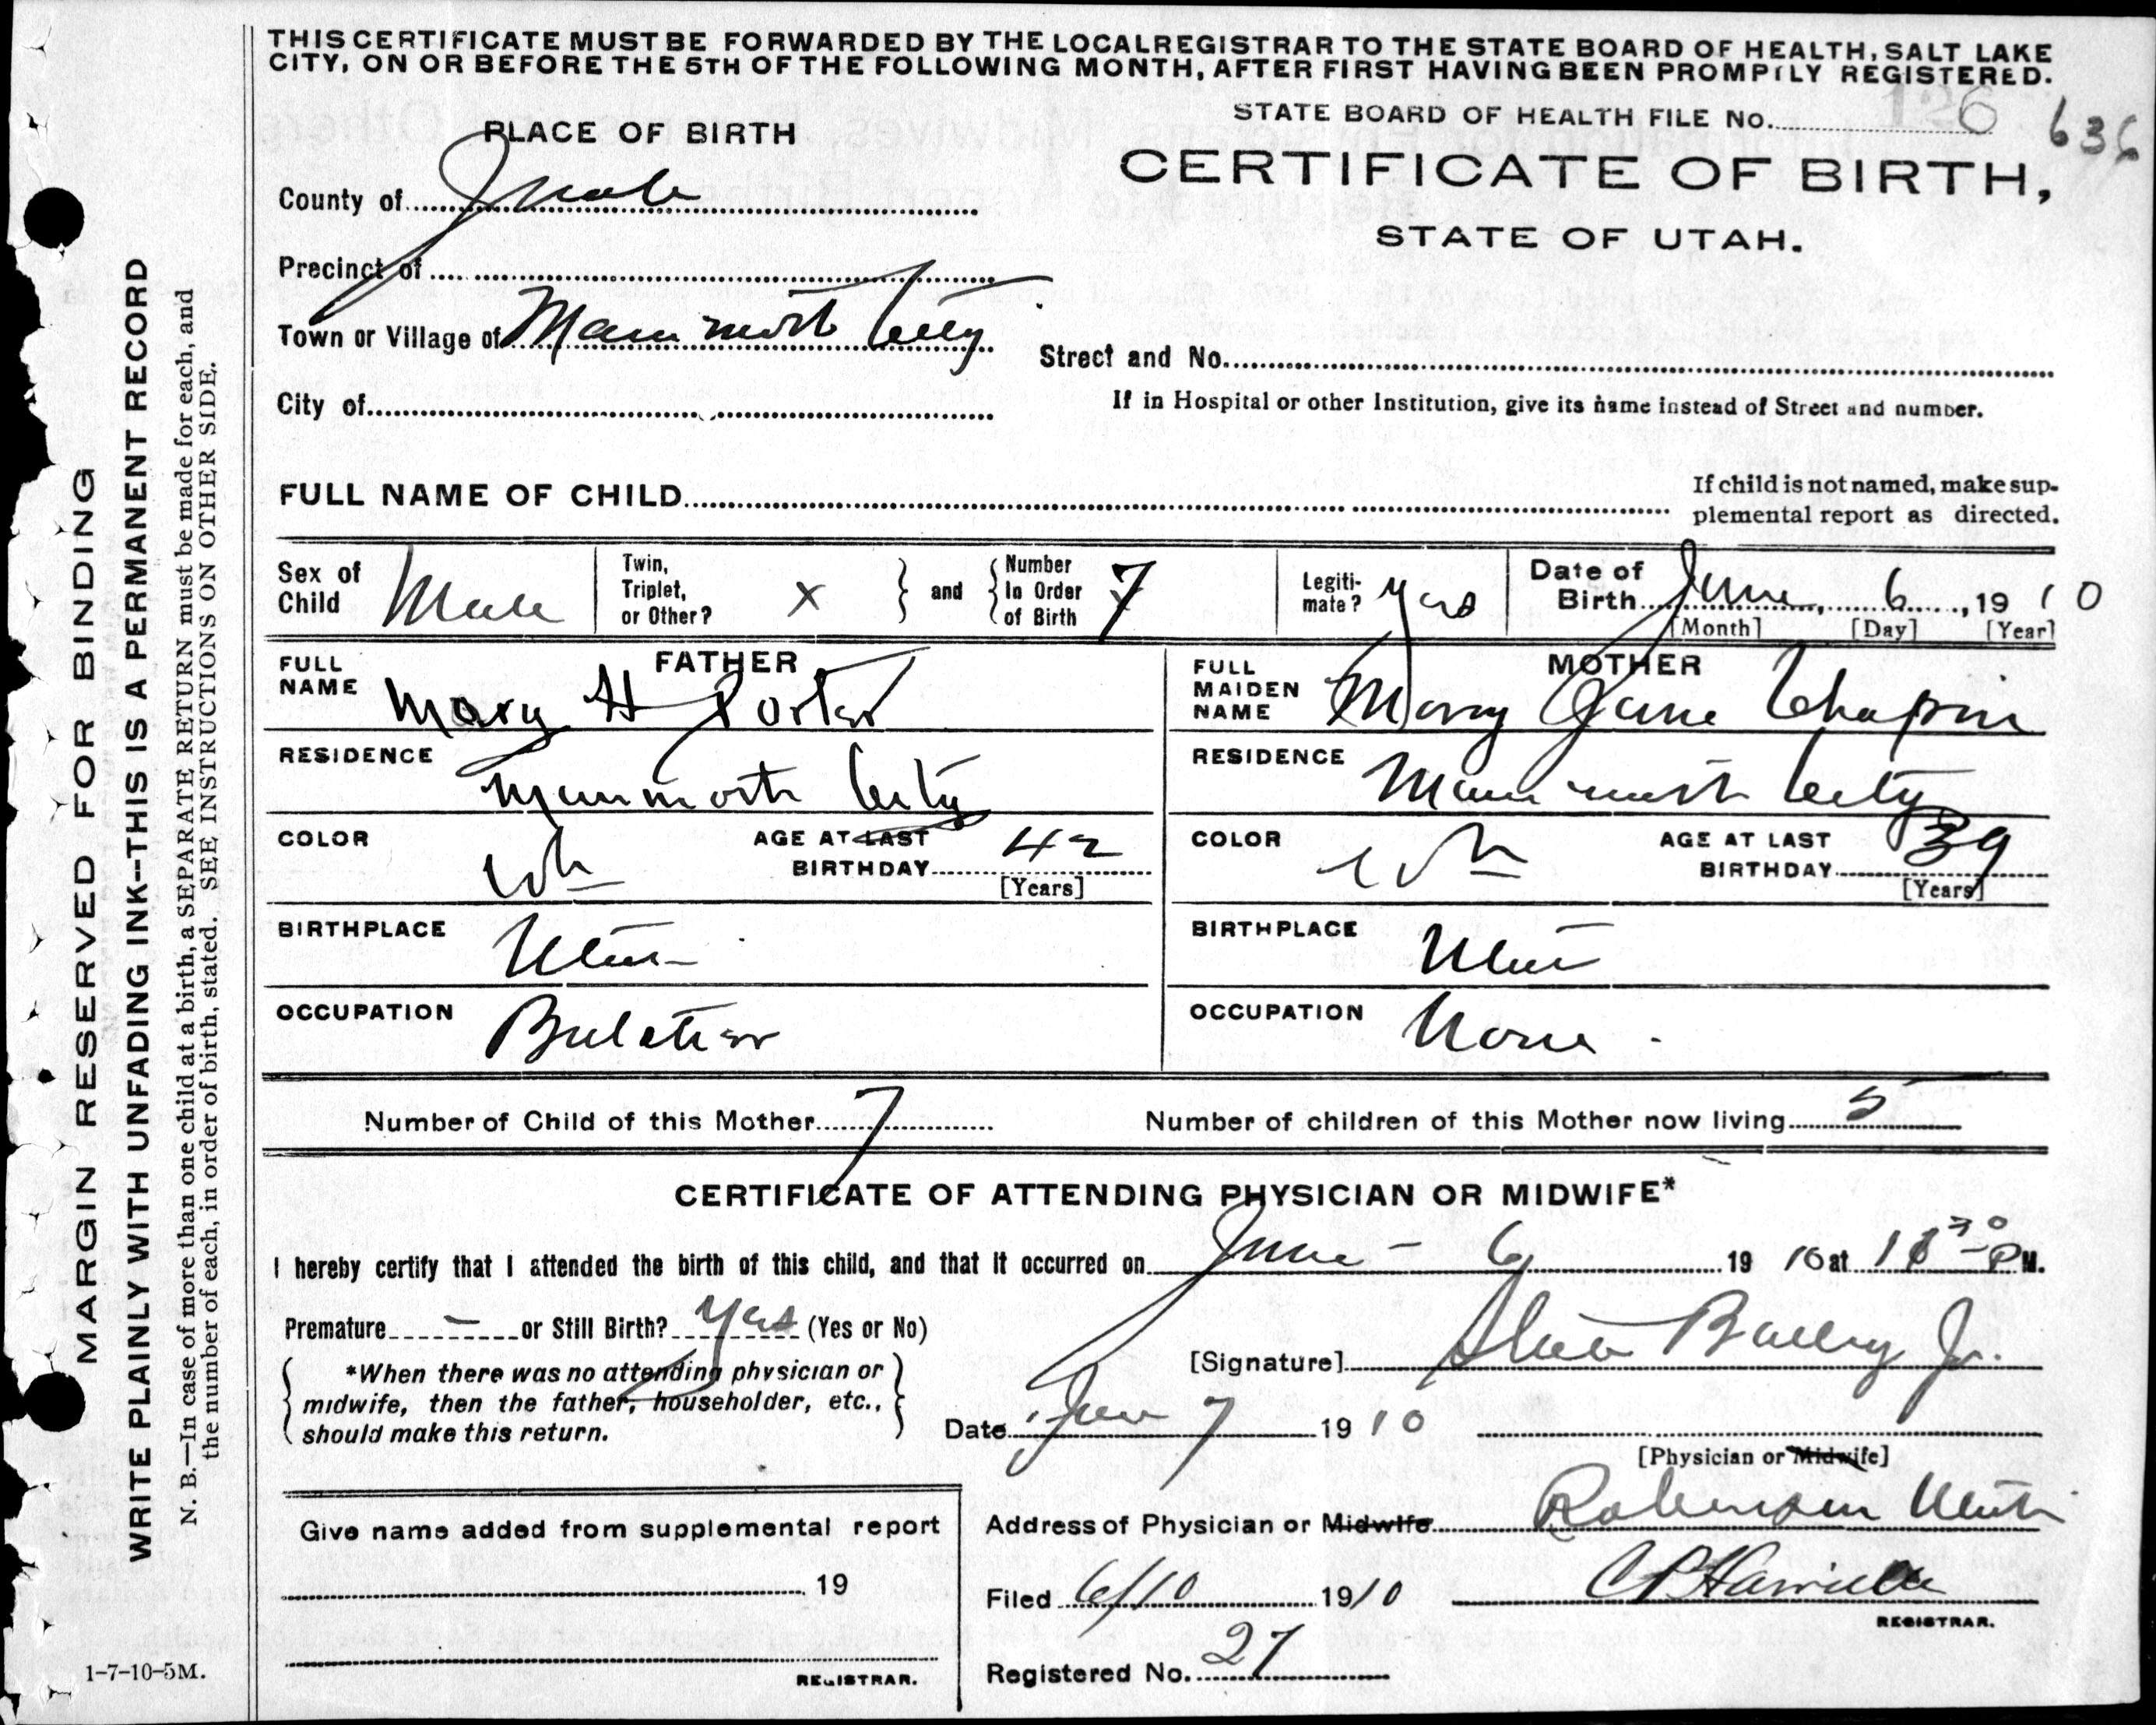 THIS CERTIFICATE MUST BE FORWARDED BY THE LOCAL REGISTRAR TO THE STATE BOARD OF HEALTH, SALT LAKE
CITY, ON OR BEFORE THE 5TH OF THE FOLLOWING MONTH, AFTER FIRST HAVING BEEN PROMPTLY REGISTERED.
STATE BOARD OF HEALTH FILE No. 126 636
PLACE OF BIRTH
CERTIFICATE OF BIRTH,
STATE OF UTAH.
County of Juab
Precinct of
Town or Village of Mammoth City
Street and No.
City of
If in Hospital or other Institution, give its name instead of Street and number.
FULL NAME OF CHILD
If child is not named, make sup-
plemental report as directed.
Sex of Child Male
Twin, Triplet, or Other? X
and Number In Order of Birth 7
Legiti-mate? Yes
Date of Birth June 6, 1910
[Month] [Day] [Year]
FATHER
FULL NAME H Porter
RESIDENCE Mammoth City
COLOR Wh
AGE AT LAST BIRTHDAY 42
[Years]
BIRTHPLACE Utah
OCCUPATION
MOTHER
FULL MAIDEN NAME Mary Jane Chapin
RESIDENCE Mammoth City
COLOR Wh
AGE AT LAST BIRTHDAY 39
[Years]
BIRTHPLACE Utah
OCCUPATION None
Number of Child of this Mother 7
Number of children of this Mother now living 5
CERTIFICATE OF ATTENDING PHYSICIAN OR MIDWIFE*
I hereby certify that I attended the birth of this child, and that it occurred on June - 6 1910 at 30 P M.
Premature - or Still Birth? Yes (Yes or No)
*When there was no attending physician or
midwife, then the father, householder, etc.,
should make this return.
[Signature] Bailey Jr.
Date June 7 1910
[Physician or Midwife]
Address of Physician or Midwife Robinson Utah
Filed 6/10 1910
REGISTRAR.
Registered No. 27
Give name added from supplemental report
19
REGISTRAR.
MARGIN RESERVED FOR BINDING
WRITE PLAINLY WITH UNFADING INK--THIS IS A PERMANENT RECORD
N. B.—In case of more than one child at a birth, a SEPARATE RETURN must be made for each, and
the number of each, in order of birth, stated. SEE INSTRUCTIONS ON OTHER SIDE.
1-7-10-5M.